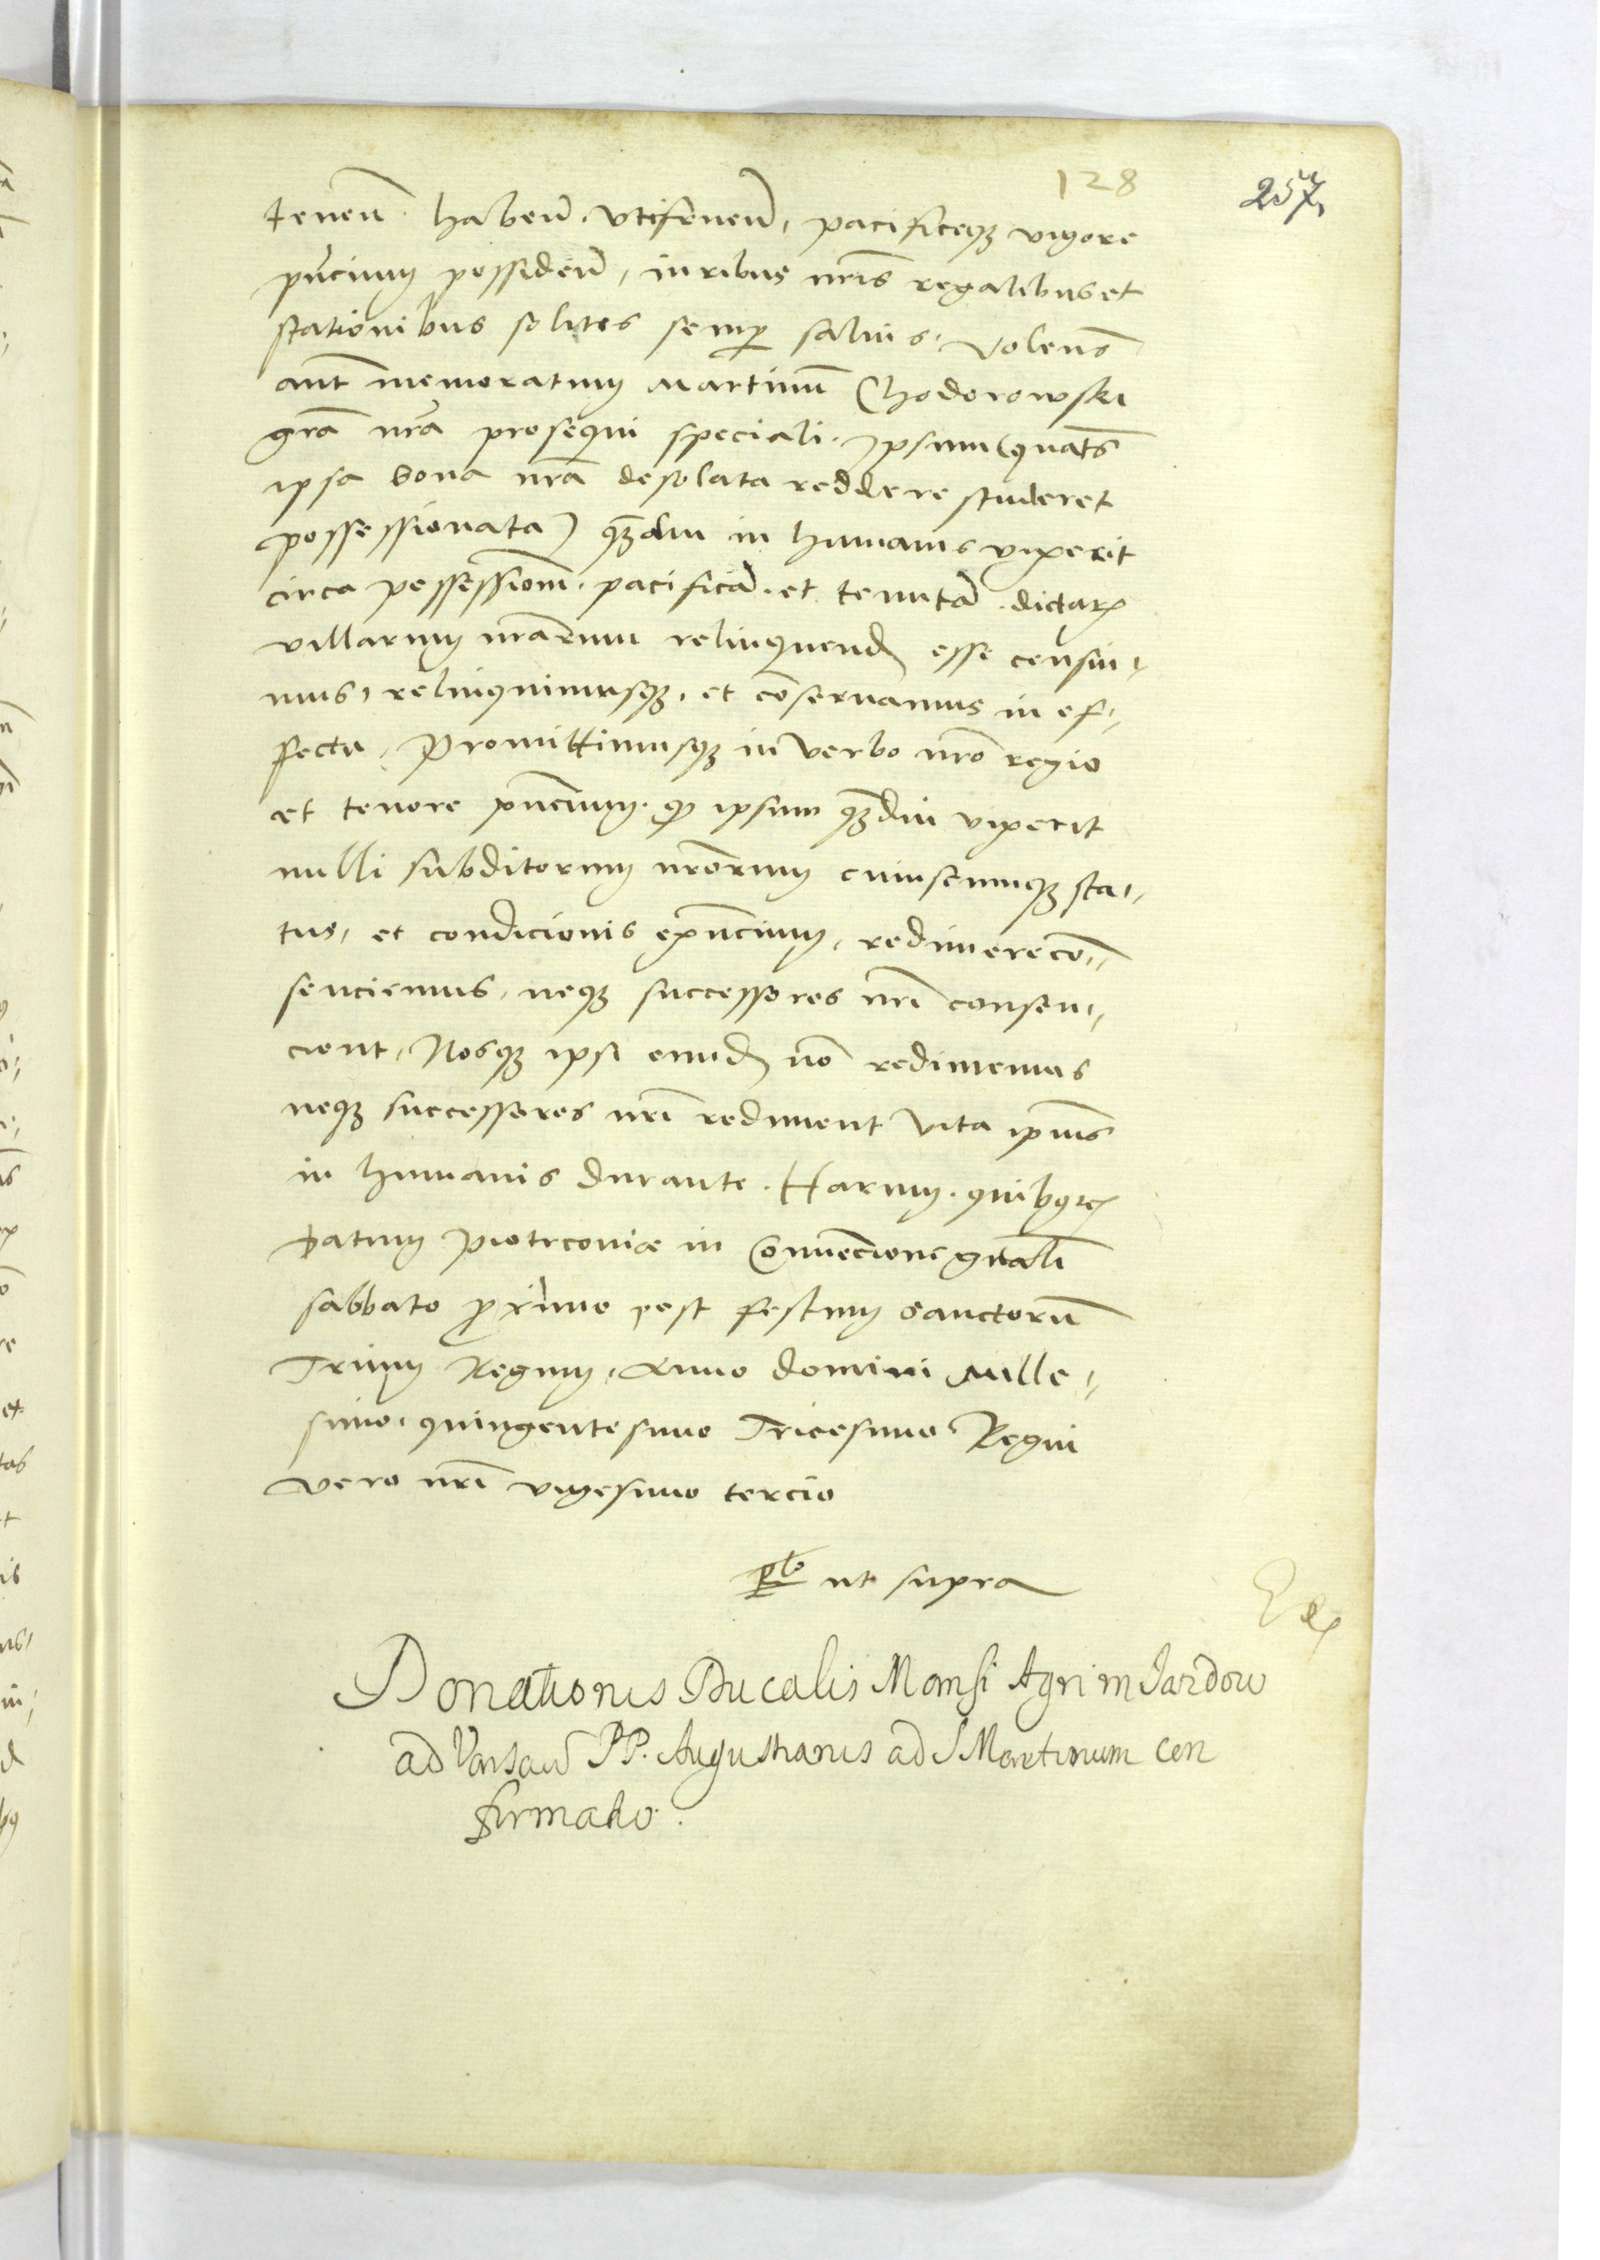 128
257
teneñ. habeñ. vtifrueñ, pacificeqꝫ vigore
pñcium possideñ, iuribus nr̃is regalibus et
stationibus solitis semꝑ saluis. Volens
aut̃ memoratum Martinũ Chodorowski
gr̃a nr̃a prosequi speciali. Ipsum (quat̃s
ipsa bona nr̃a desolata reddere studeret
possessionata) qꝫdiu in humanis vixerit
circa possessionẽ. pacificã. et tenutã. dictaꝝ
villarum nr̃arum relinquend̃ esse censui-
mus, relinquimusqꝫ. et cõseruamus in ef-
fectu. Promittimusqꝫ in verbo nr̃o regio
et tenore pñcium. qꝙ ipsum qꝫdiu vixerit
nulli subditorum nr̃orum cuiuscumqꝫ sta-
tus, et condicionis expñcium, redimere con-
senciemus, neqꝫ successores nr̃i consen-
cient, Nosqꝫ ipsi eund̃ nõ redimemus
neqꝫ successores nr̃i rediment vita ip̃ius
in humanis durante. Harum. quibꝰ ꝛc̃
Datum Piotrcouiæ in Conuẽcione gñali
sabbato ꝓximo post festum sanctorũ
Trium Regum, Anno domini Mille-
simo. quingentesimo Tricesimo Regni
vero nr̃i vigesimo tercio
ut supra
Donationis Ducalis Mansi Agri in Jazdow
ad Varsaũ PP. Augustianis ad S Martinum con
firmatio.